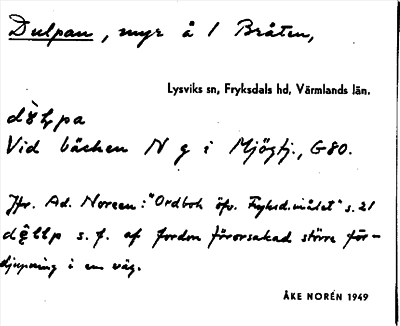 Dulpan, myr å 1 Bråten,
Lysviks sn, Fryksdals hd, Värmlands län.
Vid bäcken N g i Mjögtj., G80.
Jfr. Ad. Noreen: "Ordbok öfv. Fryksd.målet" s. 21
s. f. af fordon förorsakad större för-
djupning i en väg.
ÅKE NORÉN 1949